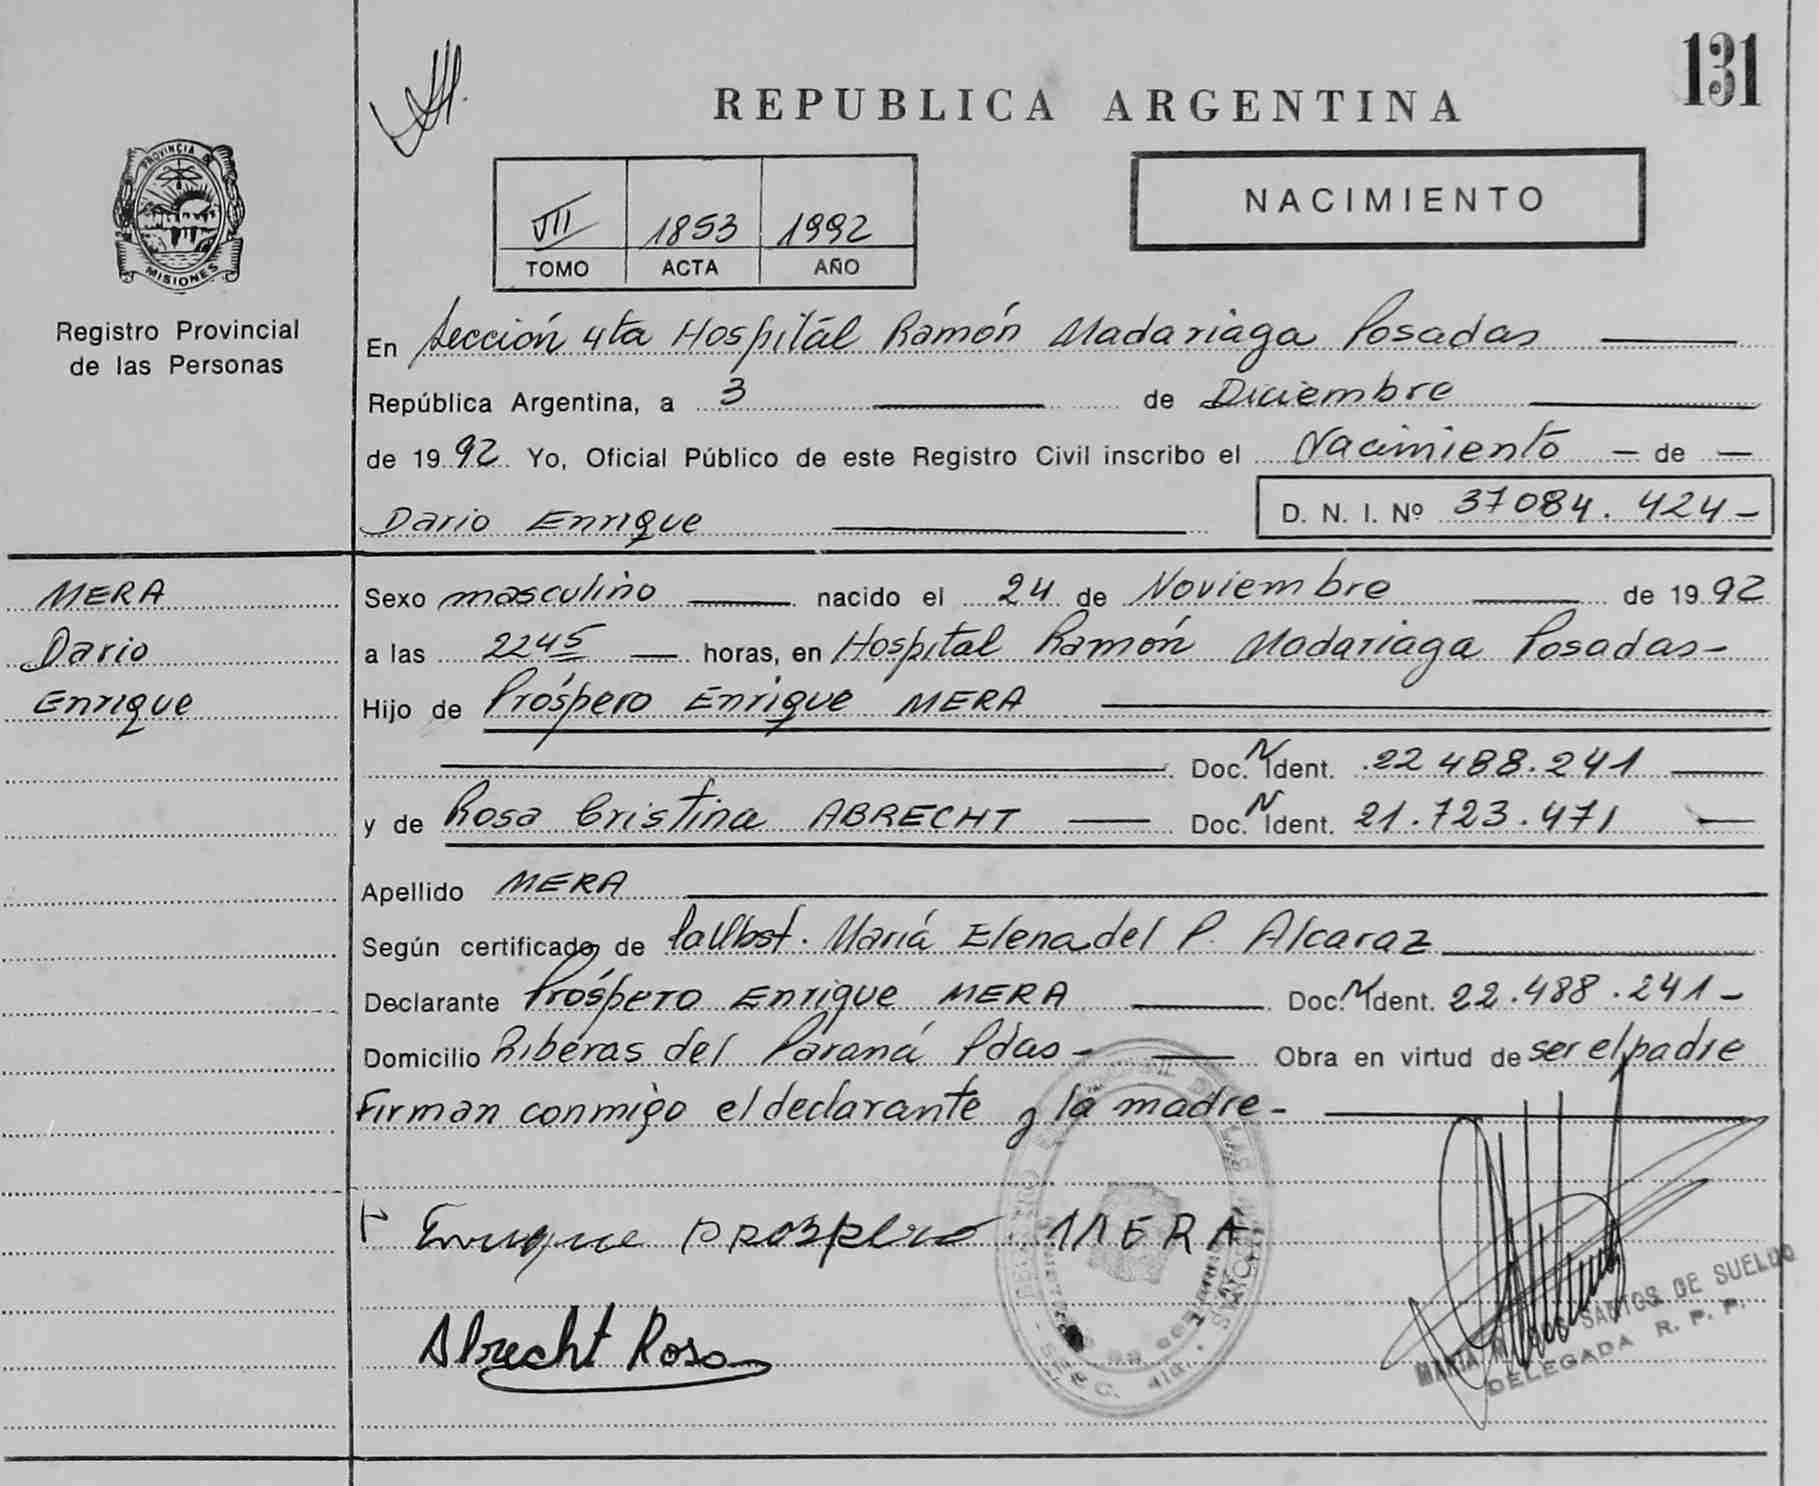 131
REPUBLICA ARGENTINA
NACIMIENTO
PROVINCIA DE
MISIONES
Registro Provincial
de las Personas
VII 1853 1992
TOMO ACTA AÑO
En Sección 4ta Hospital Ramón Madariaga Posadas
República Argentina, a 3 de Diciembre
de 1992 Yo, Oficial Público de este Registro Civil inscribo el Nacimiento de
Dario Enrique
D. N. I. Nº 37084.424
MERA
Dario
Enrique
Sexo masculino nacido el 24 de Noviembre de 1992
a las 2245 horas, en Hospital Ramón Madariaga Posadas
Hijo de Próspero Enrique MERA
Doc. N Ident. 22 488.241
y de Rosa Cristina ABRECHT Doc. N Ident. 21.723.471
Apellido MERA
Según certificado de Obst. María Elena del P. Alcaraz
Declarante Próspero Enrique MERA Doc. N Ident. 22.488.241
Domicilio Riberas del Paraná Pdas Obra en virtud de ser el padre
Firman conmigo el declarante y la madre
Enrique Prospero MERA
Abrecht Rosa
SANTOS DE SUELDO
DELEGADA R. P. P.